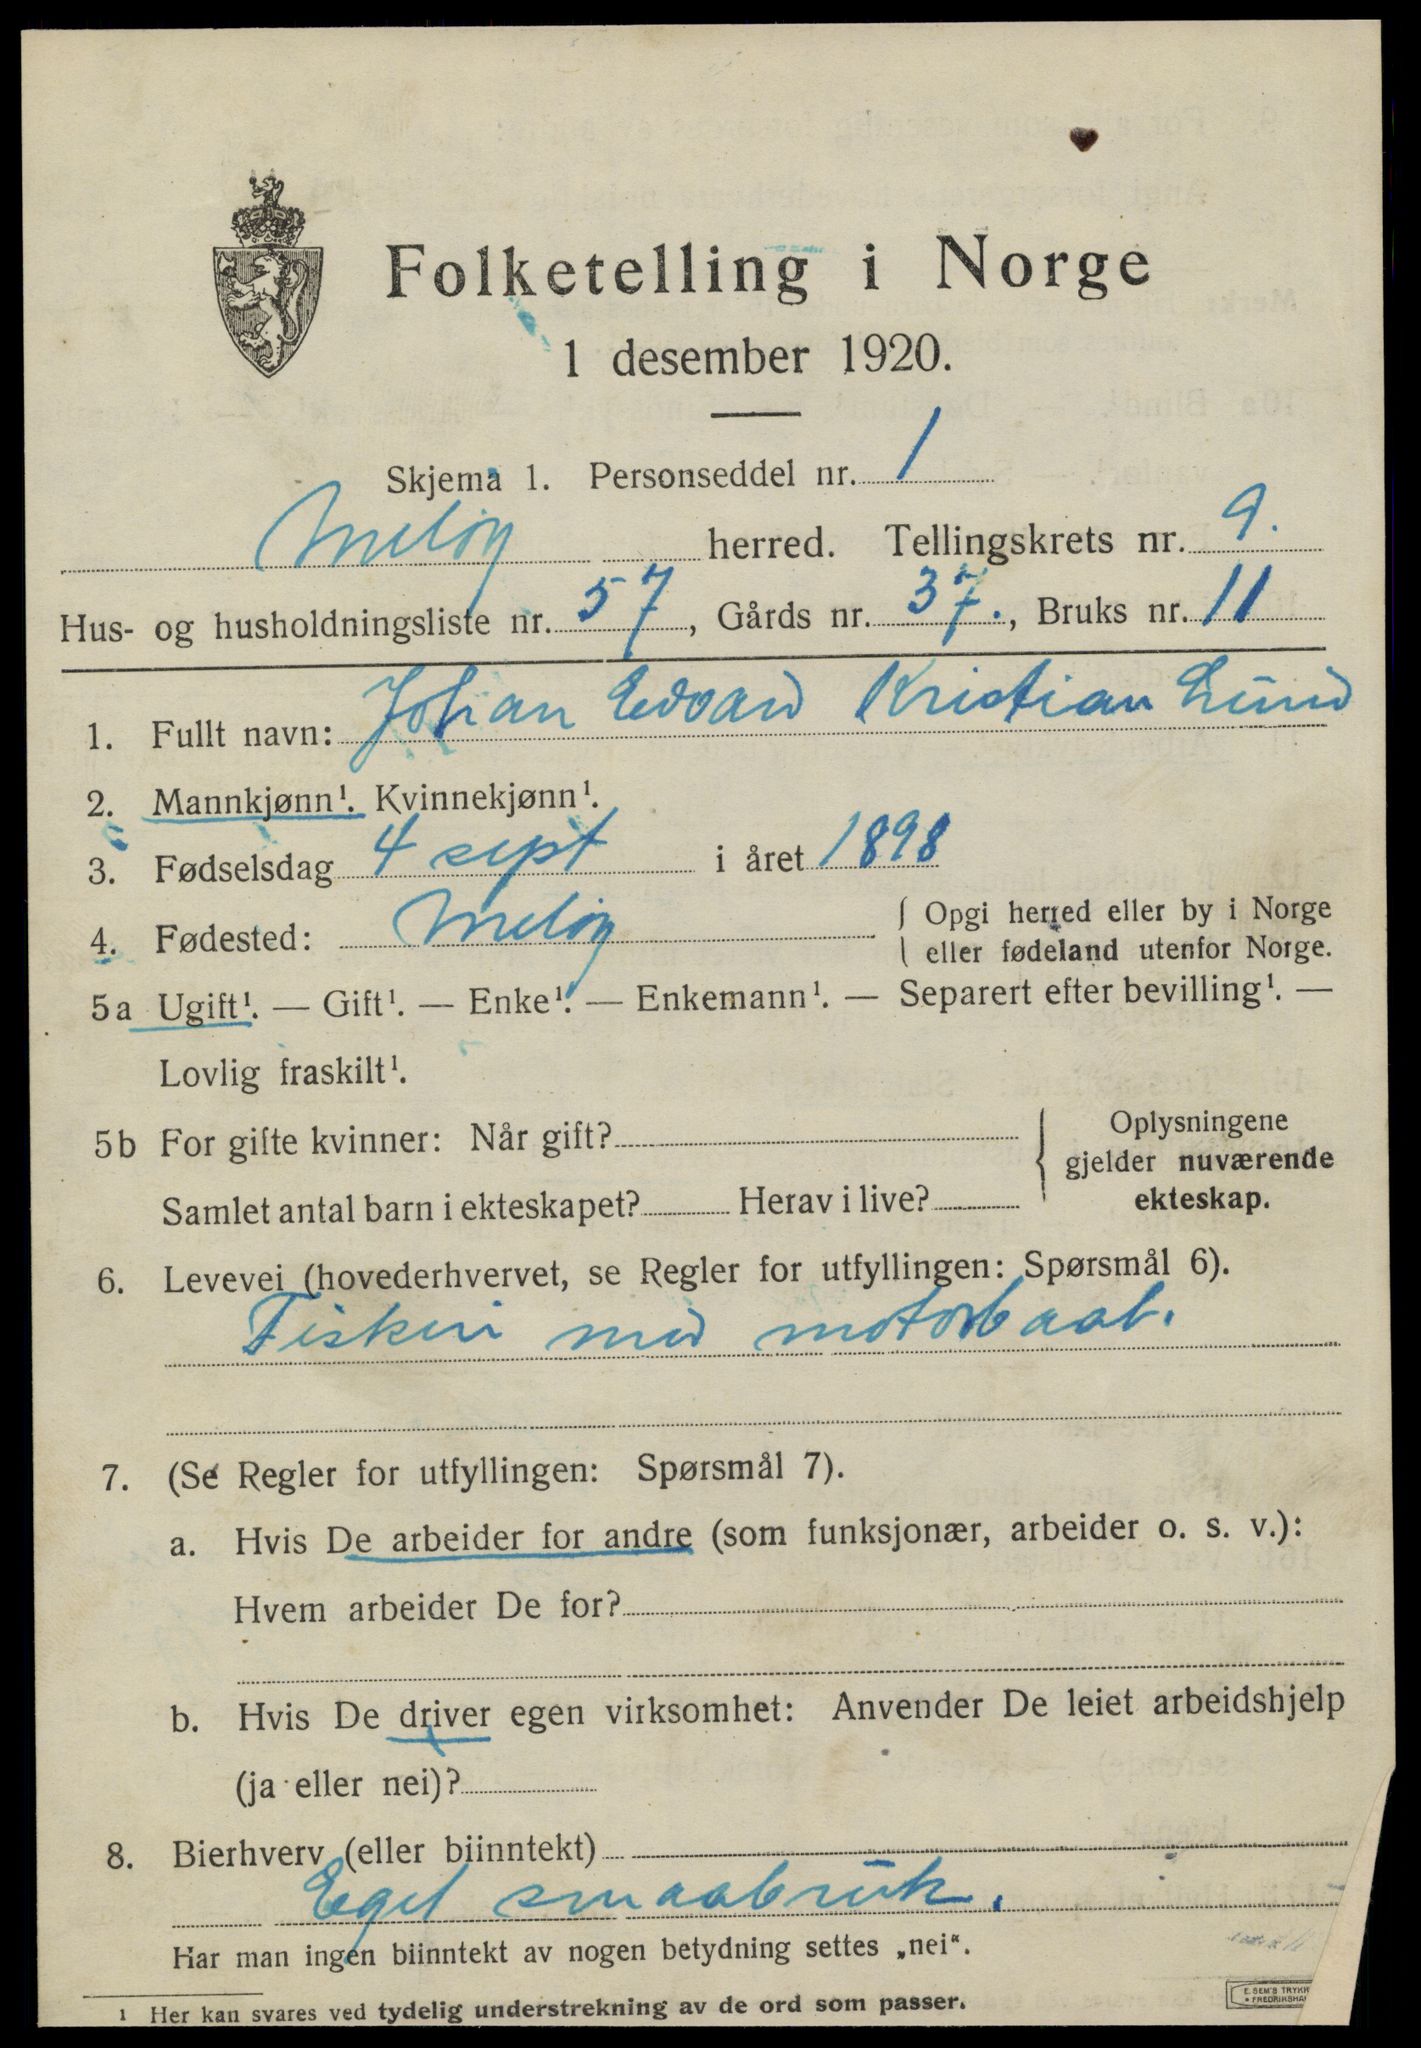 Folketelling i Norge
1 desember 1920.
Skjema 1. Personseddel nr. 1
Meløy herred. Tellingskrets nr. 9.
Hus- og husholdningsliste nr. 57, Gårds nr. 37., Bruks nr. 11
1. Fullt navn: Johan Edvard Kristian Lund
2. Mannkjønn¹. Kvinnekjønn¹.
3. Fødselsdag 4 sept i året 1898
4. Fødested: Meløy { Opgi herred eller by i Norge
eller fødeland utenfor Norge.
5a Ugift¹. — Gift¹. — Enke¹. — Enkemann¹. — Separert efter bevilling¹. —
Lovlig fraskilt¹.
5b For gifte kvinner: Når gift? { Oplysningene
gjelder nuværende
Samlet antal barn i ekteskapet? Herav i live? ekteskap.
6. Levevei (hovederhvervet, se Regler for utfyllingen: Spørsmål 6).
Fiskeri med motorbaat.
7. (Se Regler for utfyllingen: Spørsmål 7).
a. Hvis De arbeider for andre (som funksjonær, arbeider o. s. v.):
Hvem arbeider De for?
b. Hvis De driver egen virksomhet: Anvender De leiet arbeidshjelp
(ja eller nei)?
8. Bierhverv (eller biinntekt)
Eget smaabruk.
Har man ingen biinntekt av nogen betydning settes „nei“.
¹ Her kan svares ved tydelig understrekning av de ord som passer.
E. SEM'S TRYKK
FREDRIKSHA